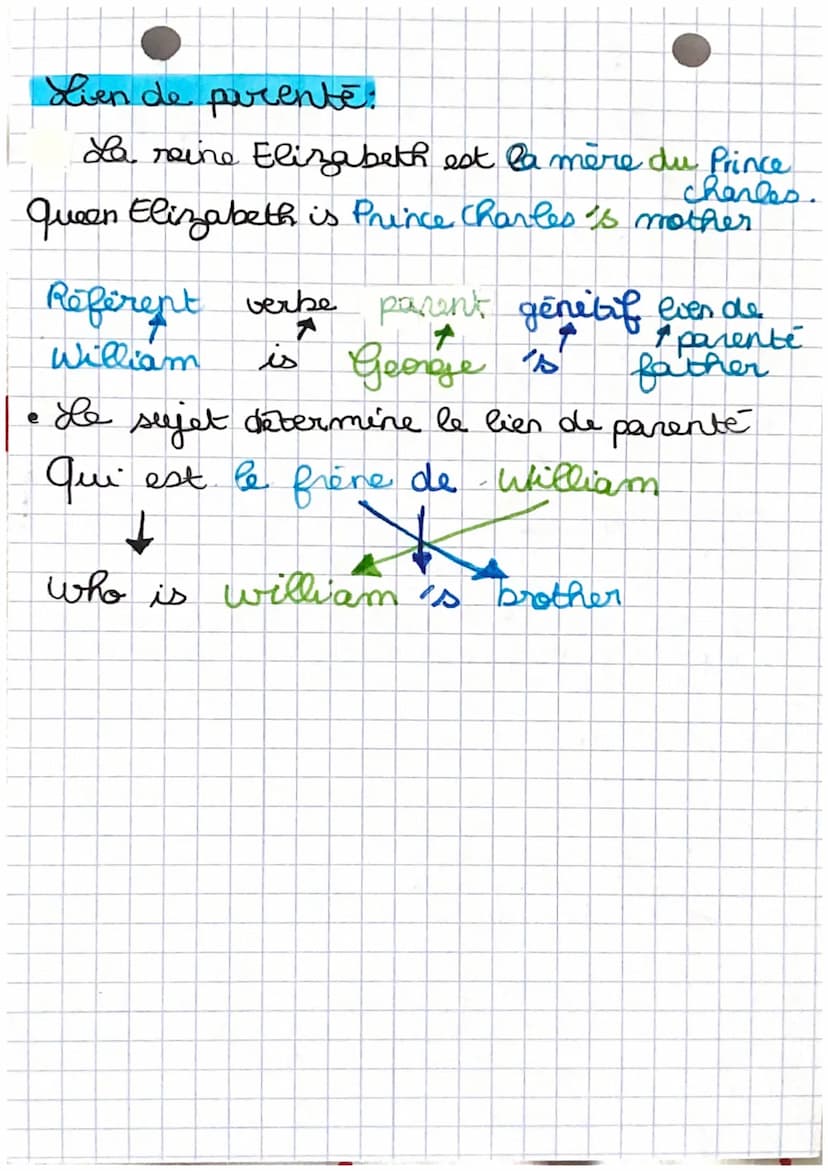 Lien de parenté:
La reine Elizabeth est la mère du Prince
Charles.
Queen Elizabeth is Prince Charles 's mother
Référent verbe parent génitif lien de
parenté
William is George 's father
• Le sujet détermine le lien de parenté
Qui est le frère de William
Who is william 's brother